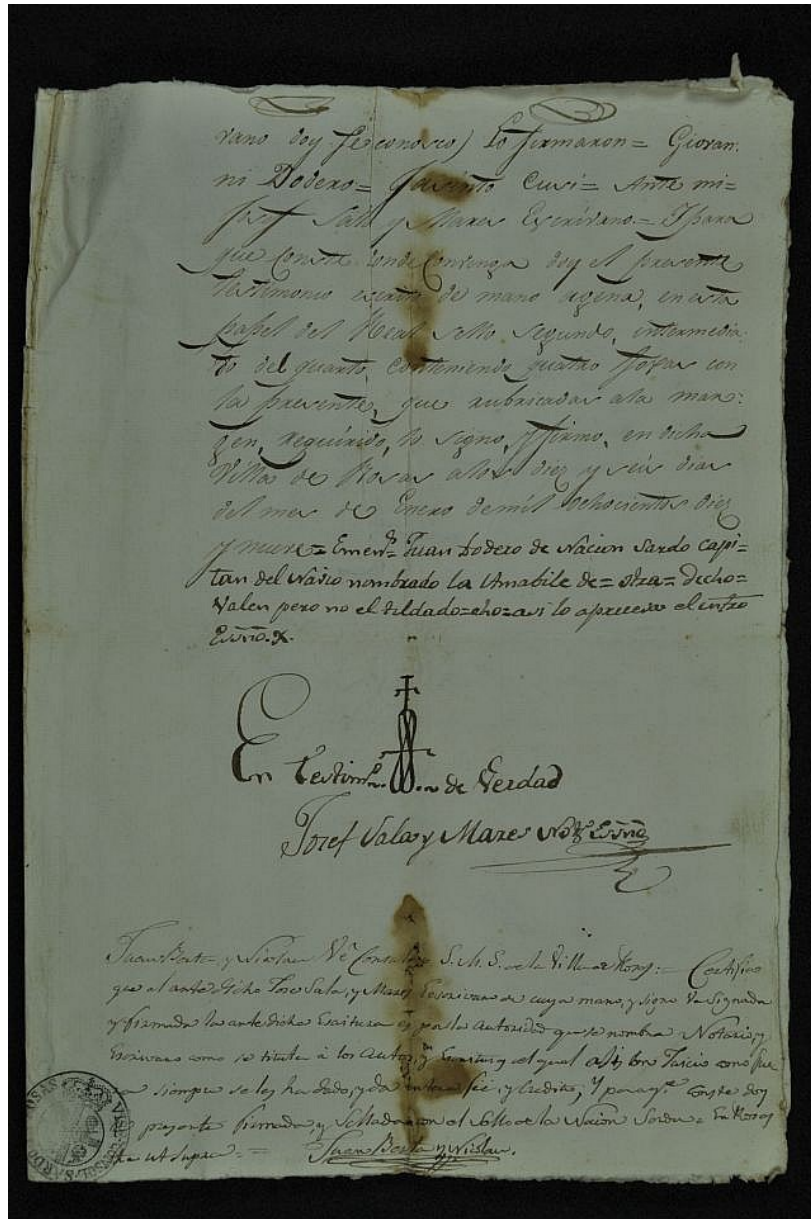 vano doy fe conosco) Lo firmaron= Giovan:
ni Dodero= Jacinto Cusi= Ante mi=
Josef Sala y Mares Escrivano= Y para
que Conste donde Convenga doy el presente
testimonio escrito de mano agena, en esta
papel del Real sello segundo, intermedia
to del quarto, conteniendo quatro fojas con
la presente, que rubricadas ala mar:
gen, requirido, lo signo, y firmo, en dicha
Villa de Rosas alos diez y seis dias
del mes de Enero de mil ochocientos diez
y nueve= Emendo. Juan Dodero de Nacion Sardo capi=
tan del Navio nombrado la Amabile de= otra= decho=
Valen pero no el tildado=cho=asi lo apruevo el infro
Essno.
En testimo. de Verdad
Josef Sala y Mares Noto. Essno
Juan Berta y Nicolau Ve. Consul de S. M. S. de la Villa de Rosas:= Certifico
que el ante dicho Jose Sala, y Mares Escrivano de cuya mano, y signo va Signada
y firmada la ante dicha Escritura es por la autoridad que se nombra Notario, y
Escrivano como se titula â los Autos, y Escrituras el qual asi en Juicio como fue
ra siempre se les ha dado, y da entera feé, y Credito; Y para qe. Conste doy
la presente firmada, y Sellada con el Sello de la Nacion Sarda= En Rosas
fha ut Supra=
Juan Berta y Nicolau.